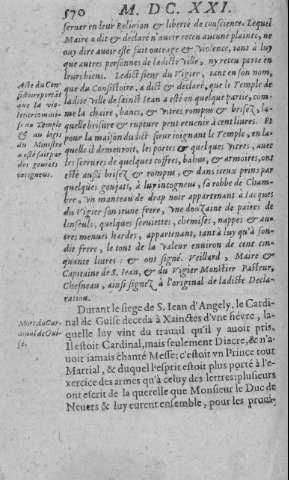 570 M. DC. XXI.
seruer en leur Religion & liberté de conscience. Lequel
Maire a dit & declaré n'auoir receu aucune plainte, ne
ouy dire auoir esté fait outrage & violence, tant à luy
que autres personnes de ladicte ville, ny receu perte en
leurs biens. Ledict sieur du Vigier, tant en son nom,
que du Consistoire, a dict & declaré, que le Temple de
ladite ville de sainct Iean a esté en quelque partie, com-
me la chaire, bancs, & vitres rompus & brisez, la-
quelle brisure & rupture peut reuenir à cent liures. Et
pour la maison dudit sieur ioignant le Temple, en la-
quelle il demeuroit, les portes & quelques vitres, auec
les serrures de quelques coffres, bahus, & armoires, ont
esté aussi brisez & rompus, & dans iceux prins par
quelques goujats, à luy incogneus, sa robbe de Cham-
bre, vn manteau de drap noir appartenant à Iacques
du Vigier son ieune frere, vne douzaine de paires de
linseuls, quelques seruiettes, chemises, nappes & au-
tres menues hardes, appartenant, tant à luy qu'à son-
dit frere, le tout de la valeur enuiron de cent cin-
quante liures: & ont signé. Veillard, Maire &
Capitaine de S. Iean, & du Vigier Monstier Pasteur,
Chesneau, ainsi signez à l'original de ladicte Decla-
ration.
Acte du Con
que la vio-
au Temple
& au logis
du Ministre
a esté fait par
des goujats
incogneus.
Durant le siege de S. Iean d'Angely, le Cardi-
nal de Guise deceda à Xainctes d'vne fiévre, la-
quelle luy vint du trauail qu'il y auoit pris.
Il estoit Cardinal, mais seulement Diacre, & n'a-
uoit iamais chanté Messe: c'estoit vn Prince tout
Martial, & duquel l'esprit estoit plus porté à l'e-
xercice des armes qu'à celuy des lettres: plusieurs
ont escrit de la querelle que Monsieur le Duc de
Neuers & luy eurent ensemble, pour les prouu-
Mort du Car-
dinal de Gui-
se.